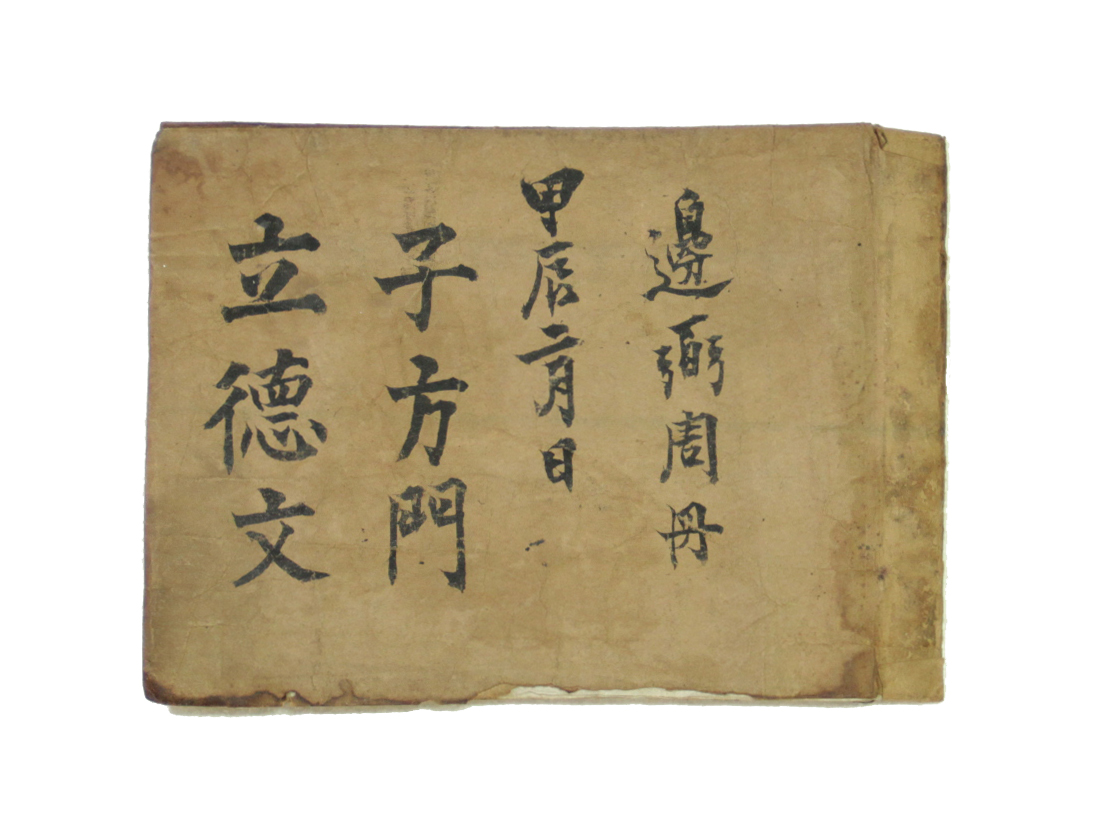 邊弼周冊
甲辰二月日
子方門
立德文